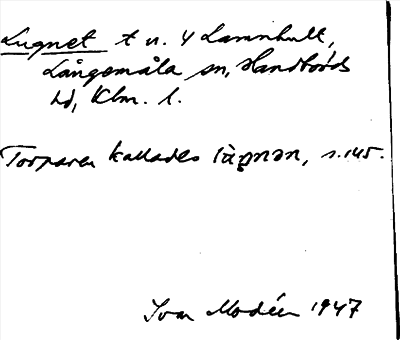 Lugnet t u. 4 Lannhult,
Långemåla sn, Handbörds
hd, Klm. l.
Torparen kallades lùgnən, s. 145.
Ivar Modéer 1947